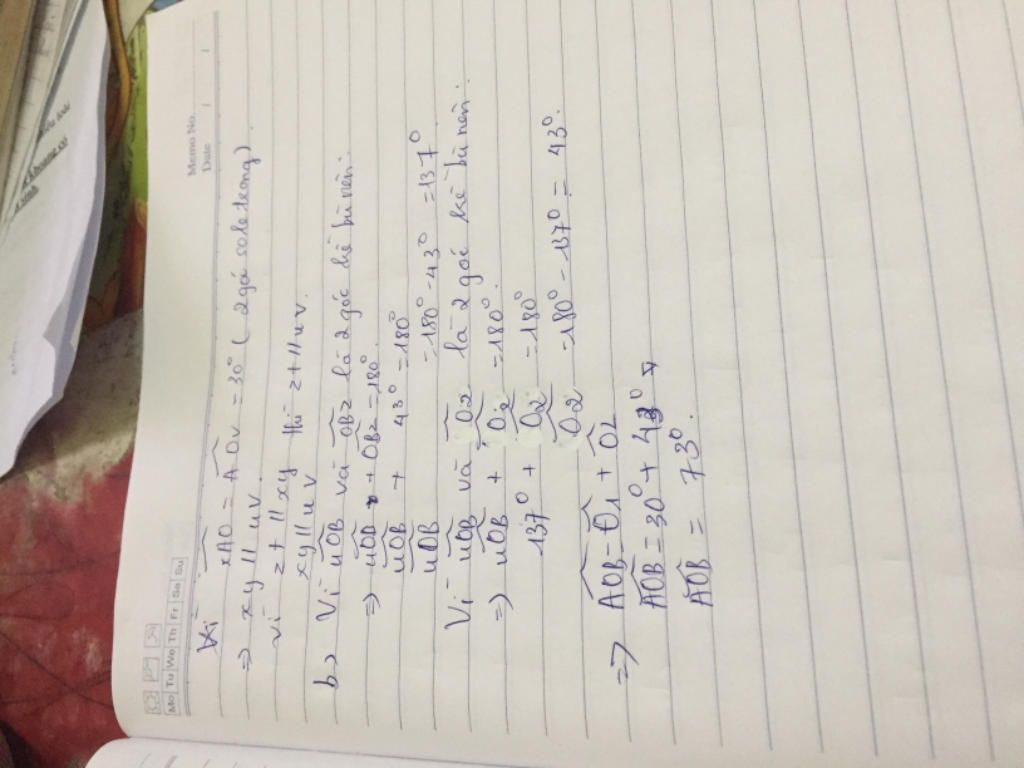 Memo No.
Date / /
Mo Tu We Th Fr Sa Su
Vì
xAO = AOv = 30° (2 góc sole trong)
=> xy // uv.
Vì zt // xy thì zt // uv.
xy // uv
b, Vì uOB và OBz là 2 góc kề bù nên:
=> uOB + OBz = 180°
uOB + 43° = 180°
uOB = 180° - 43° = 137°
Vì uOB và O2 là 2 góc kề bù nên:
=> uOB + O2 = 180°.
137° + O2 = 180°
O2 = 180° - 137° = 43°.
=> AOB = O1 + O2
AOB = 30° + 43°
AOB = 73°.